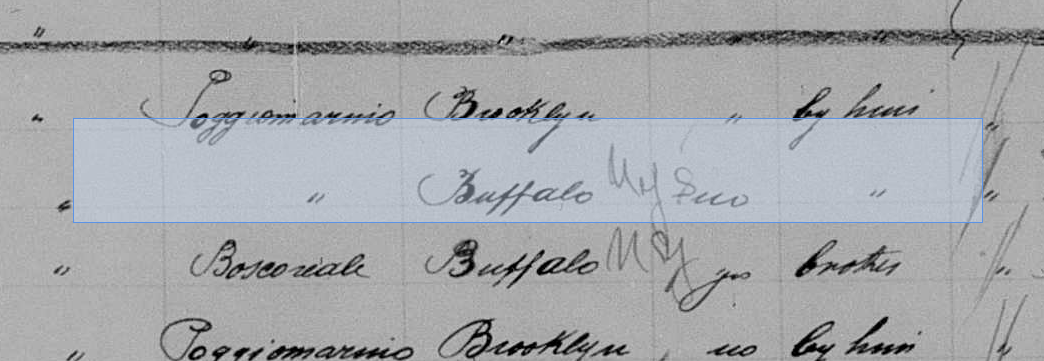 " " " " "
" Poggiomarino Brooklyn " by him "
" " Buffalo NY no " "
" Boscoreale Buffalo NY yes brother "
" Poggiomarino Brooklyn no by him "